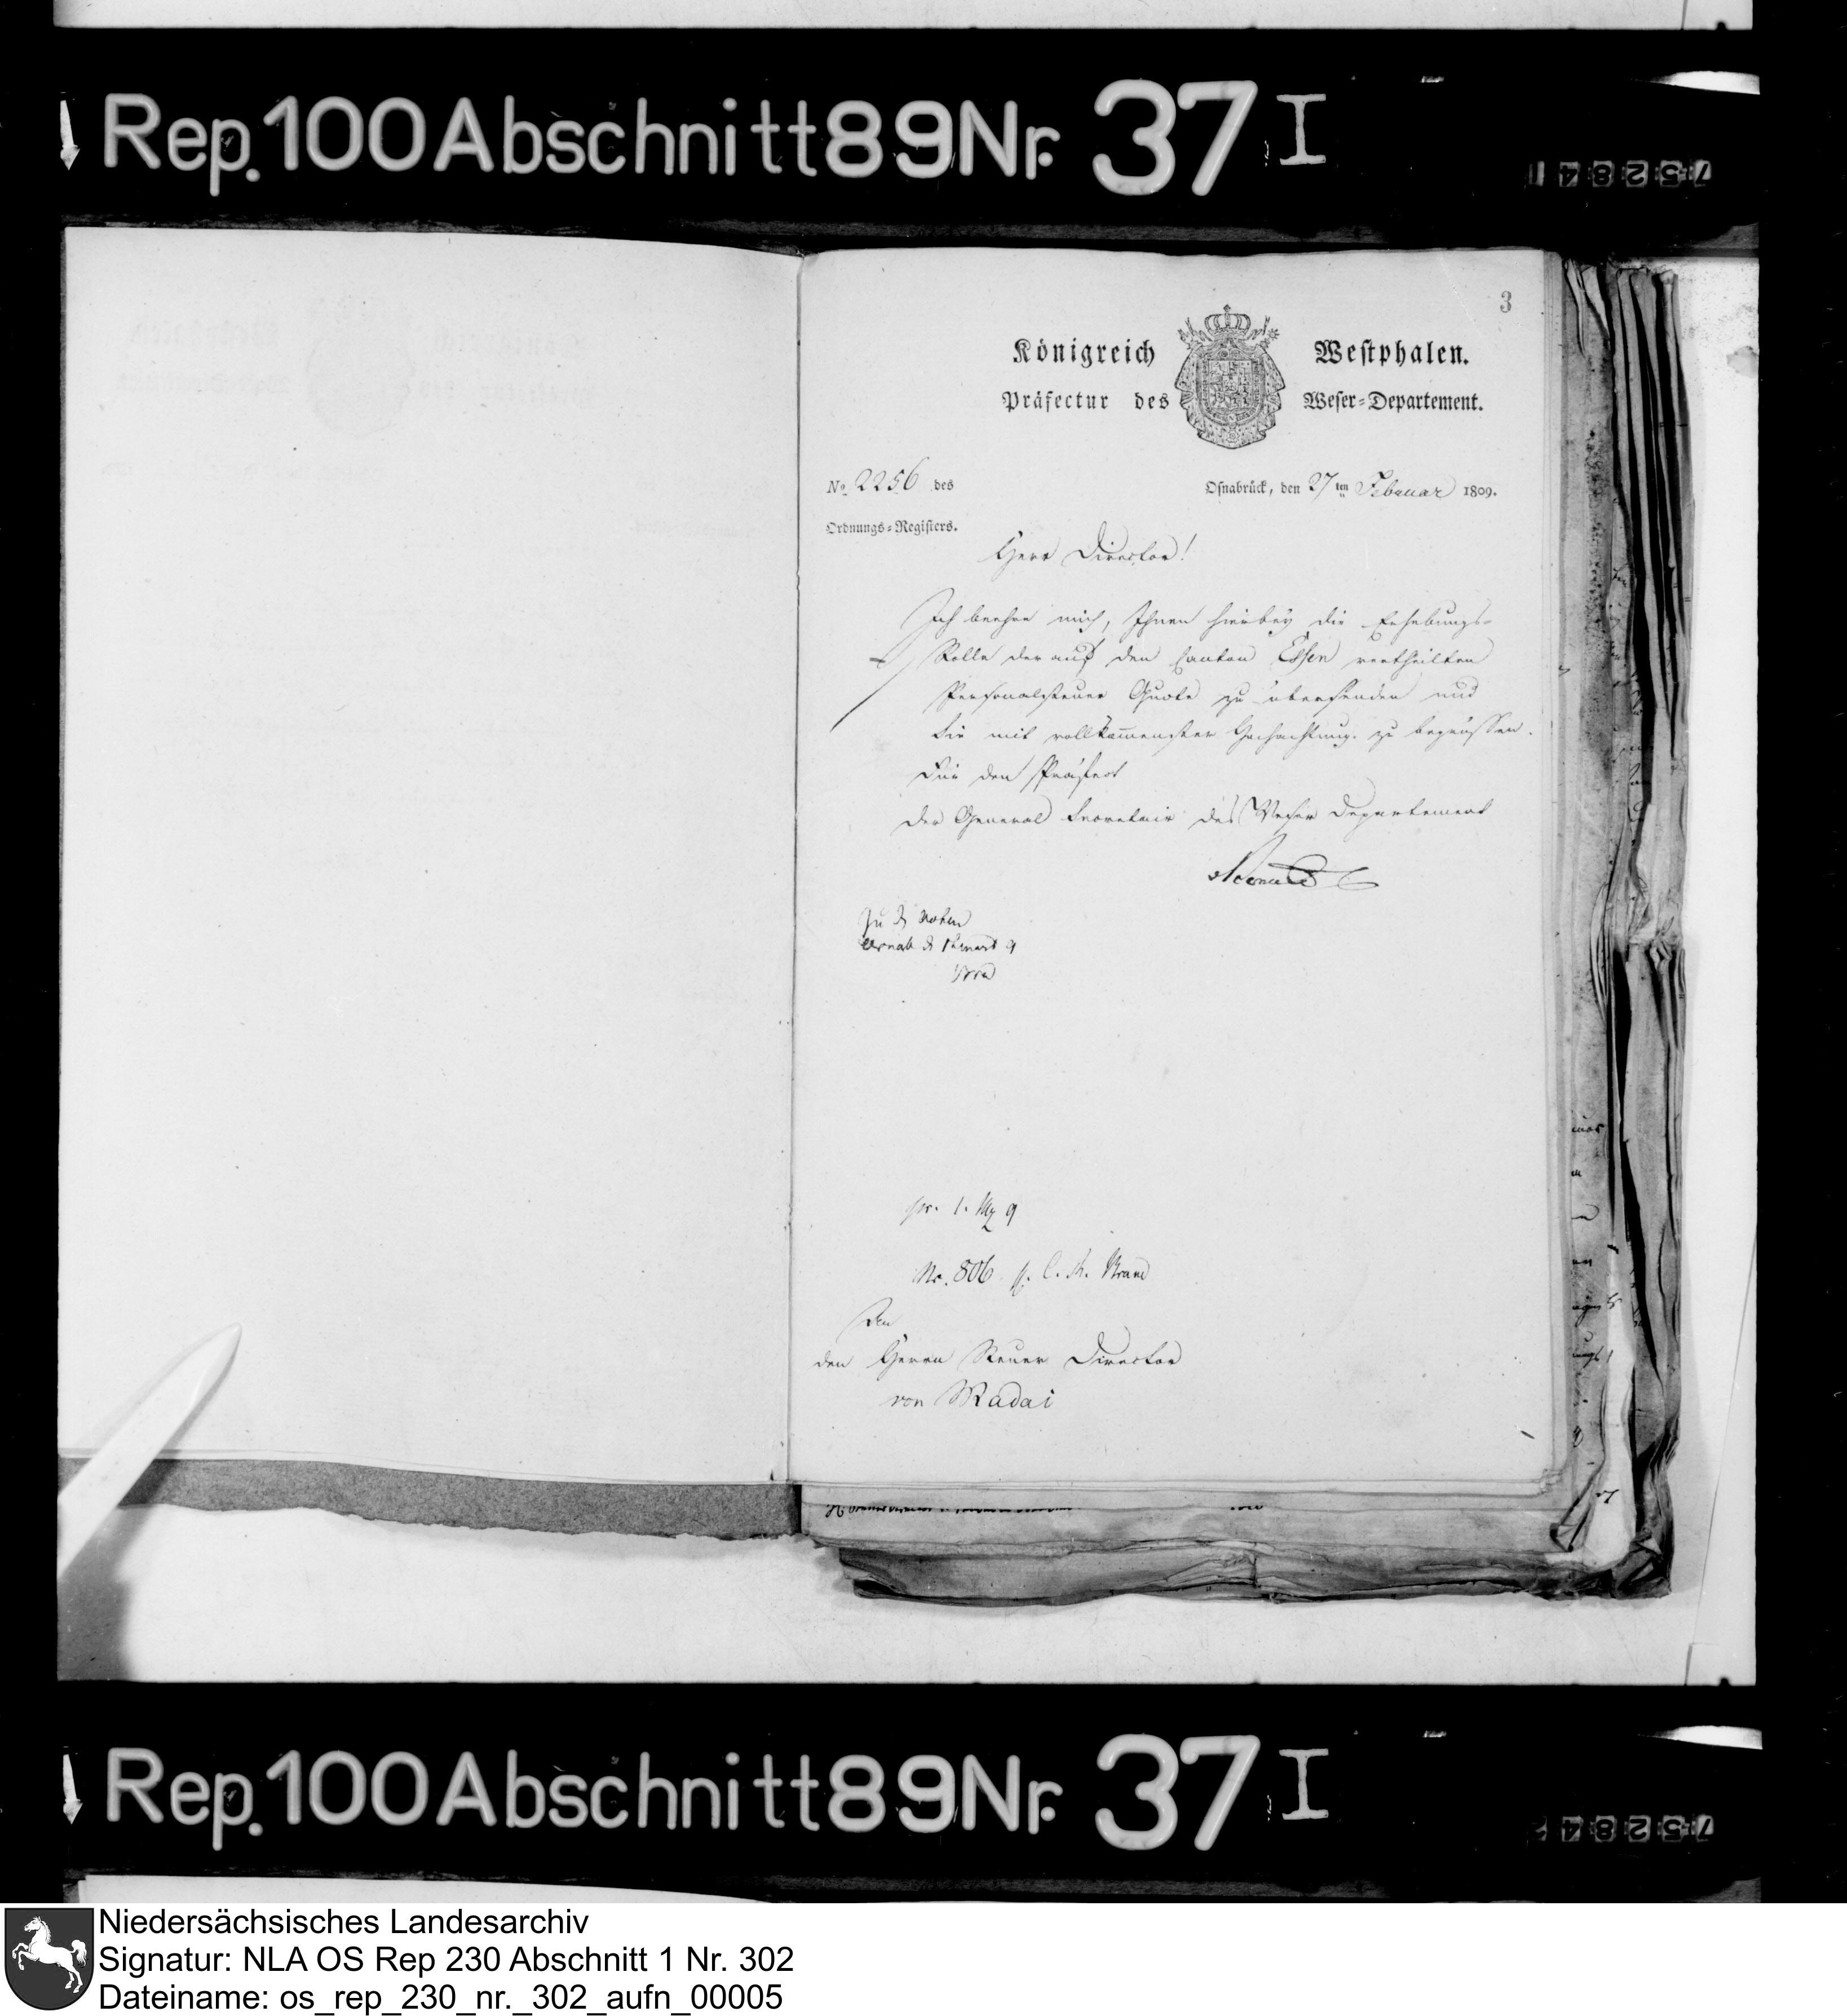 Rep. 100 Abschnitt 89 Nr. 37 I
752841
3
Königreich Westphalen.
Präfectur des Weser-Departement.
No. 2256 des
Ordnungs-Registers.
Osnabrück, den 27ten Februar 1809.
Herr Director!
Ich beehre mich, Ihnen hierbey die Erhebungs-
Rolle der auf den Canton Essen vertheilten
Personalsteuer Quote zu übersenden und
Sie mit vollkommenster Hochachtung zu begrüssen.
Für den Präfect
Der General Secretair des Weser Departement
Zu d Acten
pr. 1. Mz 9
Nr. 806
An
den Herrn Steuer Director
von Madai
Rep. 100 Abschnitt 89 Nr. 37 I
Niedersächsisches Landesarchiv
Signatur: NLA OS Rep 230 Abschnitt 1 Nr. 302
Dateiname: os_rep_230_nr._302_aufn_00005